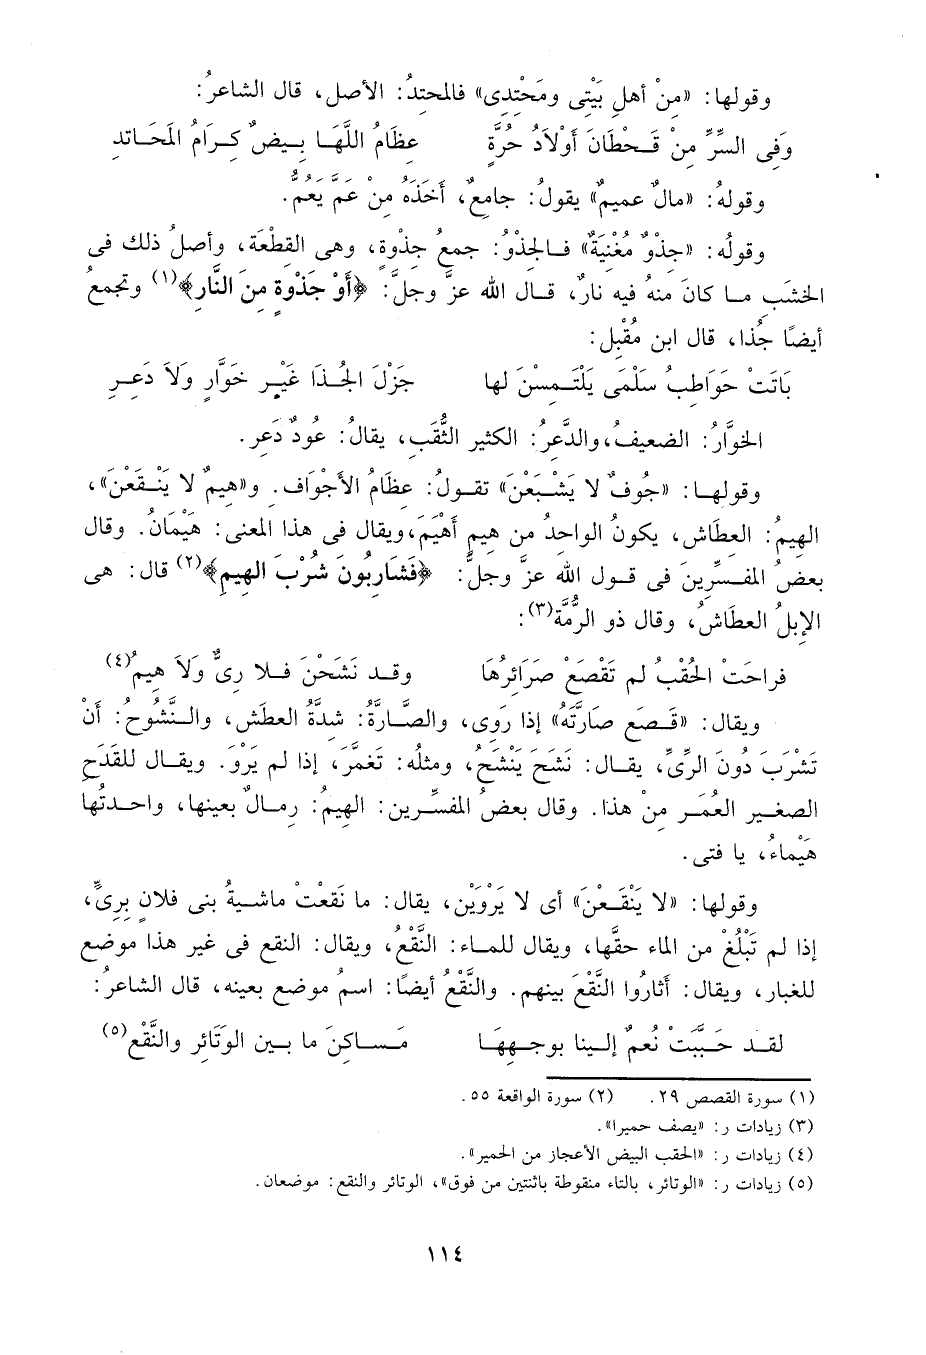 وقولها: «منْ أهلِ بَيْتِى ومَحْتِدِى» فالمحتِدُ: الأصل، قال الشاعرُ:
وَفِى السِّرِّ مِنْ قَحْطَانَ أَوْلاَدُ حُرَّةٍ عِظَامُ اللَّهَا بِيضٌ كِرَامُ المَحَاتِدِ
وقولهُ: «مالٌ عميمٌ» يقولُ: جامعٌ، أَخَذَهُ مِنْ عَمَّ يَعُمُّ.
وقولُه: «جِذوٌ مُغْنِيَةٌ» فالجِذْوُ: جمعُ جِذْوة، وهى القِطْعَة، وأصلُ ذلك فى
الخشَب ما كانَ منهُ فيه نارٌ، قال الله عزَّ وجلَّ: ﴿أَوْ جَذْوَةٍ مِنَ النَّارِ﴾(١) وتجمعُ
أيضًا جُذا، قال ابن مُقْبِلٍ:
بَاتَتْ حَوَاطِبُ سَلْمَى يَلْتَمِسْنَ لها جَزْلَ الجُذَا غَيْرِ خَوَّارٍ وَلاَ دَعِرِ
الخوَّارُ: الضعيفُ، والدَّعرُ: الكثير الثُّقَبِ، يقالُ: عُودٌ دَعِر.
وقولها: «جُوفٌ لا يشْبَعْنَ» تقولُ: عظامُ الأجْوَاف. و«هيمٌ لا يَنْقَعْن»،
الهِيمُ: العطَاش، يكونُ الواحدُ من هيمٍ أَهْيَمَ، ويقال فى هذا المعنى: هَيْمَانُ. وقال
بعضُ المفسِّرِينَ فى قول الله عزَّ وجلَّ: ﴿فَشَارِبُونَ شُرْبَ الهِيمِ﴾(٢) قال: هى
الإبلُ العطَاشُ، وقال ذو الرُّمَّة(٣):
فراحَتْ الحُقْبُ لم تَقْصَعْ صَرَائِرُهَا وقد نَشَحْنَ فلا رِىٌّ وَلاَ هِيمُ(٤)
ويقال: «قَصَعَ صارَّتَهُ» إذا رَوِى، والصَّارَّةُ: شدَّةُ العطَش، والنُّشُوحُ: أنْ
تَشْرَبَ دُونَ الرِّىِّ، يقال: نَشَحَ يَنْشَحُ، ومثلُه: تَغَمَّرَ، إذا لم يَرْوَ. ويقال للقَدَحِ
الصغير الغُمَر مِنْ هذا. وقال بعضُ المفسِّرِين: الهِيمُ: رمالٌ بعينها، واحدتُها
هَيْماءُ، يا فتى.
وقولها: «لا يَنْقَعْنَ» أى لا يَرْوَيْن، يقال: ما نَقعتْ ماشيةُ بنى فلانٍ بِرِىٍّ،
إذا لم تَبْلُغْ من الماء حقَّها، ويقال للماء: النَّقْعُ، ويقال: النقع فى غير هذا موضع
للغبار، ويقال: أثارُوا النَّقْعَ بينهم. والنَّقْعُ أيضًا: اسمُ موضع بعينه، قال الشاعرُ:
لقد حَبَّبَتْ نُعمٌ إلينا بوجهِهَا مَساكنَ ما بين الوَتَائر والنَّقْعِ(٥)
(١) سورة القصص ٢٩. (٢) سورة الواقعة ٥٥.
(٣) زيادات ر: «يصف حميرا».
(٤) زيادات ر: «الحقب البيض الأعجاز من الحمير».
(٥) زيادات ر: «الوتائر، بالتاء منقوطة باثنتين من فوق»، الوتائر والنقع: موضعان.
١١٤